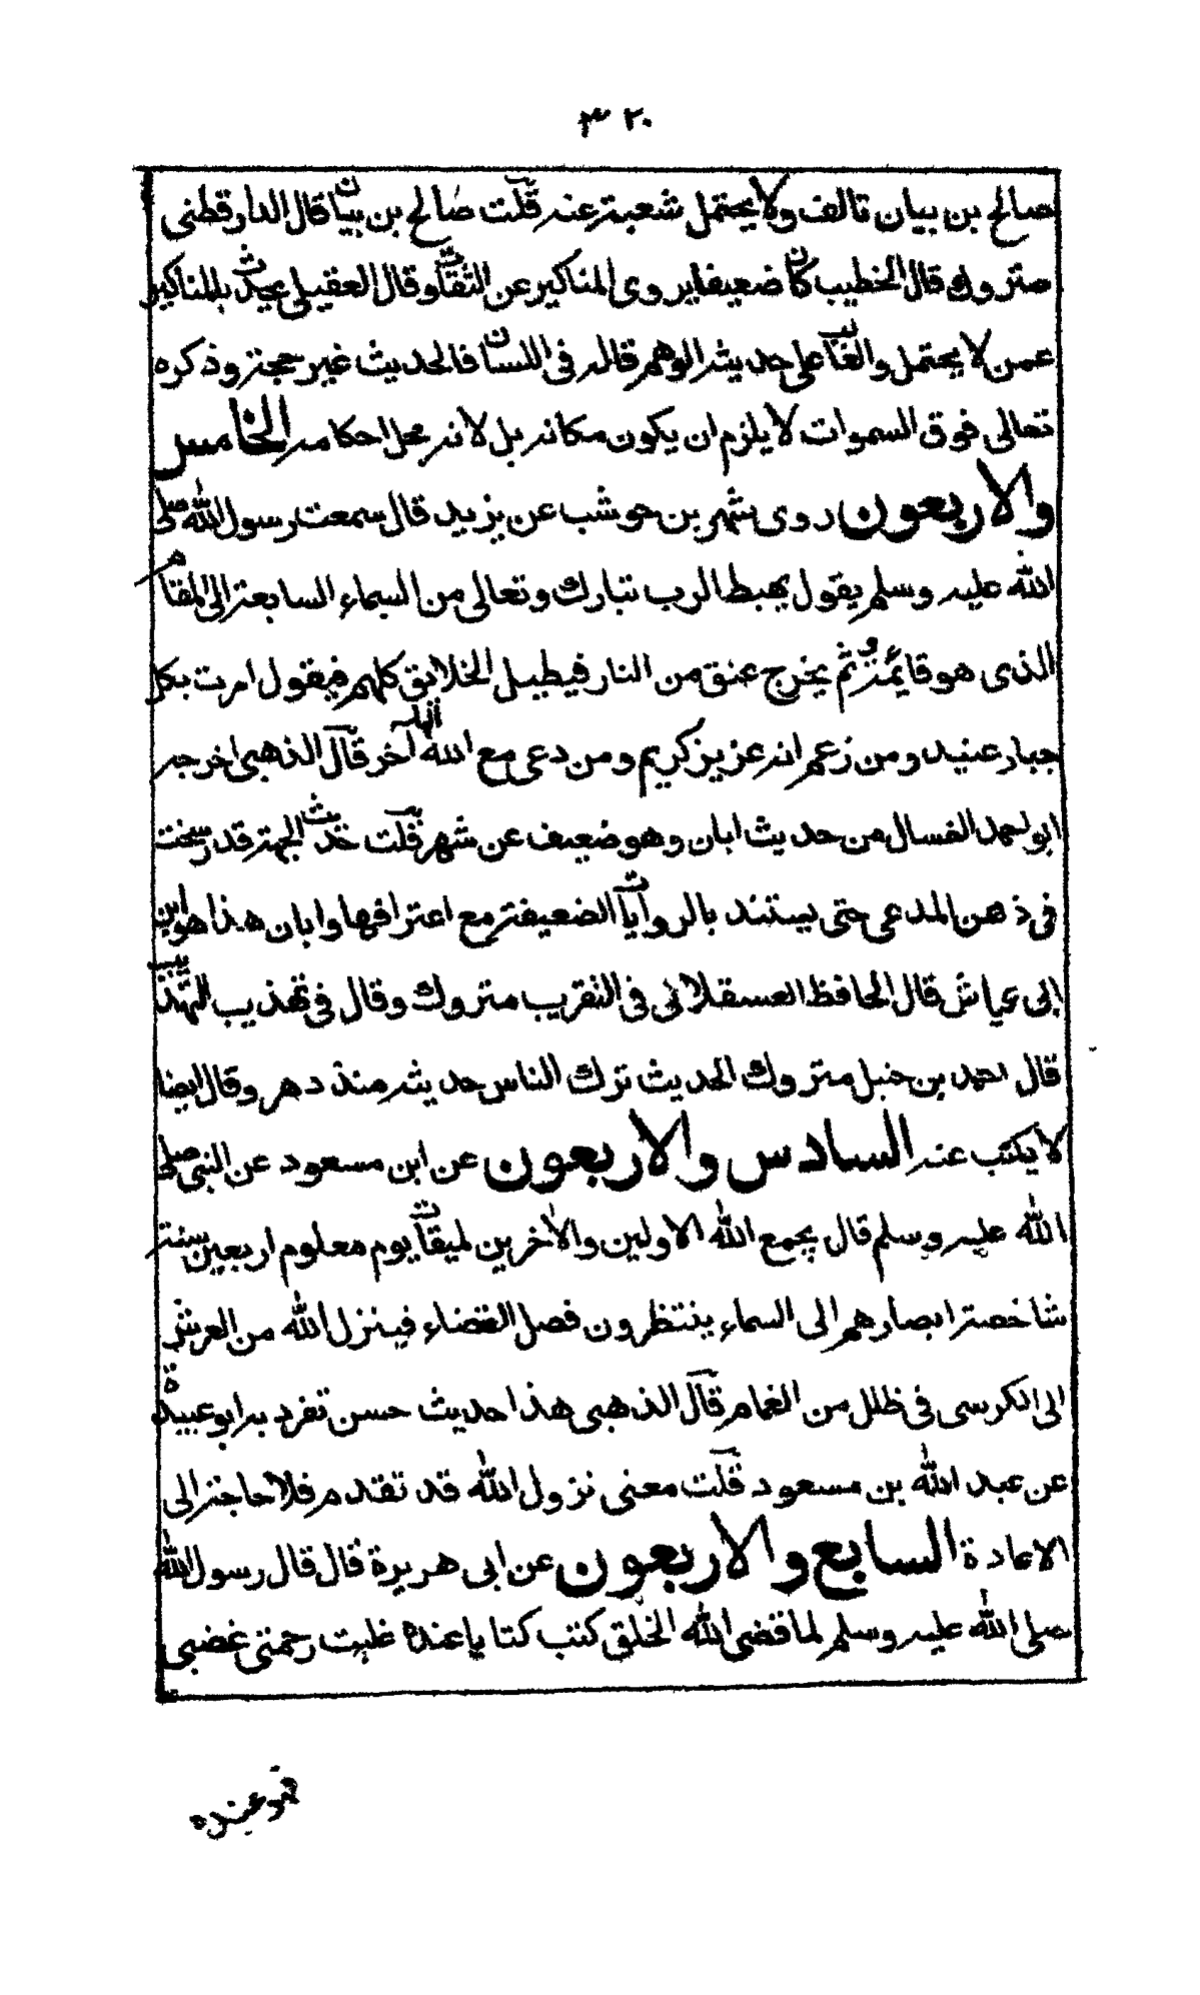 ٣٢٠
صالح بن بيان تالف ولا يحتمل شعبة عنه قلت صالح بن بيان قال الدارقطني
متروك قال الخطيب كان ضعيفا يروى المناكير عن الثقات وقال العقيلي يحدث بالمناكير
عمن لا يحتمل والغالب على حديثه الوهم قاله فى اللسان فالحديث غير حجة وذكره
تعالى فوق السموات لا يلزم ان يكون مكانه بل لانه محل احكامه الخامس
والاربعون روى شهر بن حوشب عن يزيد قال سمعت رسول الله صلى
الله عليه وسلم يقول يهبط الرب تبارك وتعالى من السماء السابعة الى المقام
الذى هو قائمه ثم يخرج عنق من النار فيطيل الخلايق كلهم فيقول امرت بكل
جبار عنيد ومن زعم انه عزيز كريم ومن دعى مع الله الها آخر قال الذهبى اخرجه
ابو احمد الغسال من حديث ابان وهو ضعيف عن شهر قلت الجهة قد رسخت
فى ذهن المدعى حتى يستند بالروايات الضعيفة مع اعترافها وابان هذا هو ابن
ابى عياش قال الحافظ العسقلانى فى التقريب متروك وقال فى تهذيب التهذيب
قال احمد بن حنبل متروك الحديث ترك الناس حديثه منذ دهر وقال ايضا
لا يكتب عنه السادس والاربعون عن ابن مسعود عن النبى صلى
الله عليه وسلم قال يجمع الله الاولين والاخرين لميقات يوم معلوم اربعين سنة
شاخصة ابصارهم الى السماء ينتظرون فصل القضاء فينزل الله من العرش
الى الكرسى فى ظلل من الغمام قال الذهبى هذا حديث حسن تفرد به ابو عبيدة
عن عبد الله بن مسعود قلت معنى نزول الله قد تقدم فلا حاجة الى
الاعادة السابع والاربعون عن ابى هريرة قال قال رسول الله
صلى الله عليه وسلم لما قضى الله الخلق كتب كتابا عنده غلبت رحمتى غضبى
فهو عنده